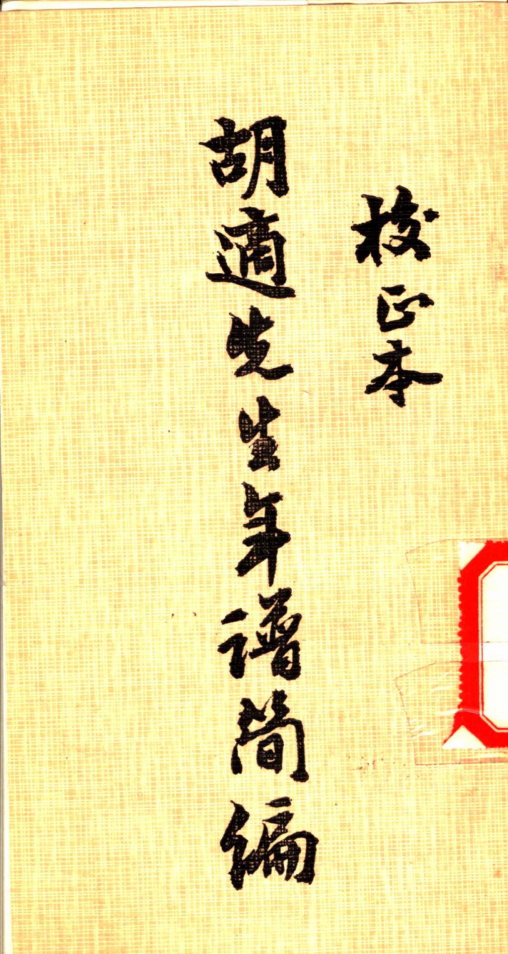 校正本
胡適先生年譜簡編